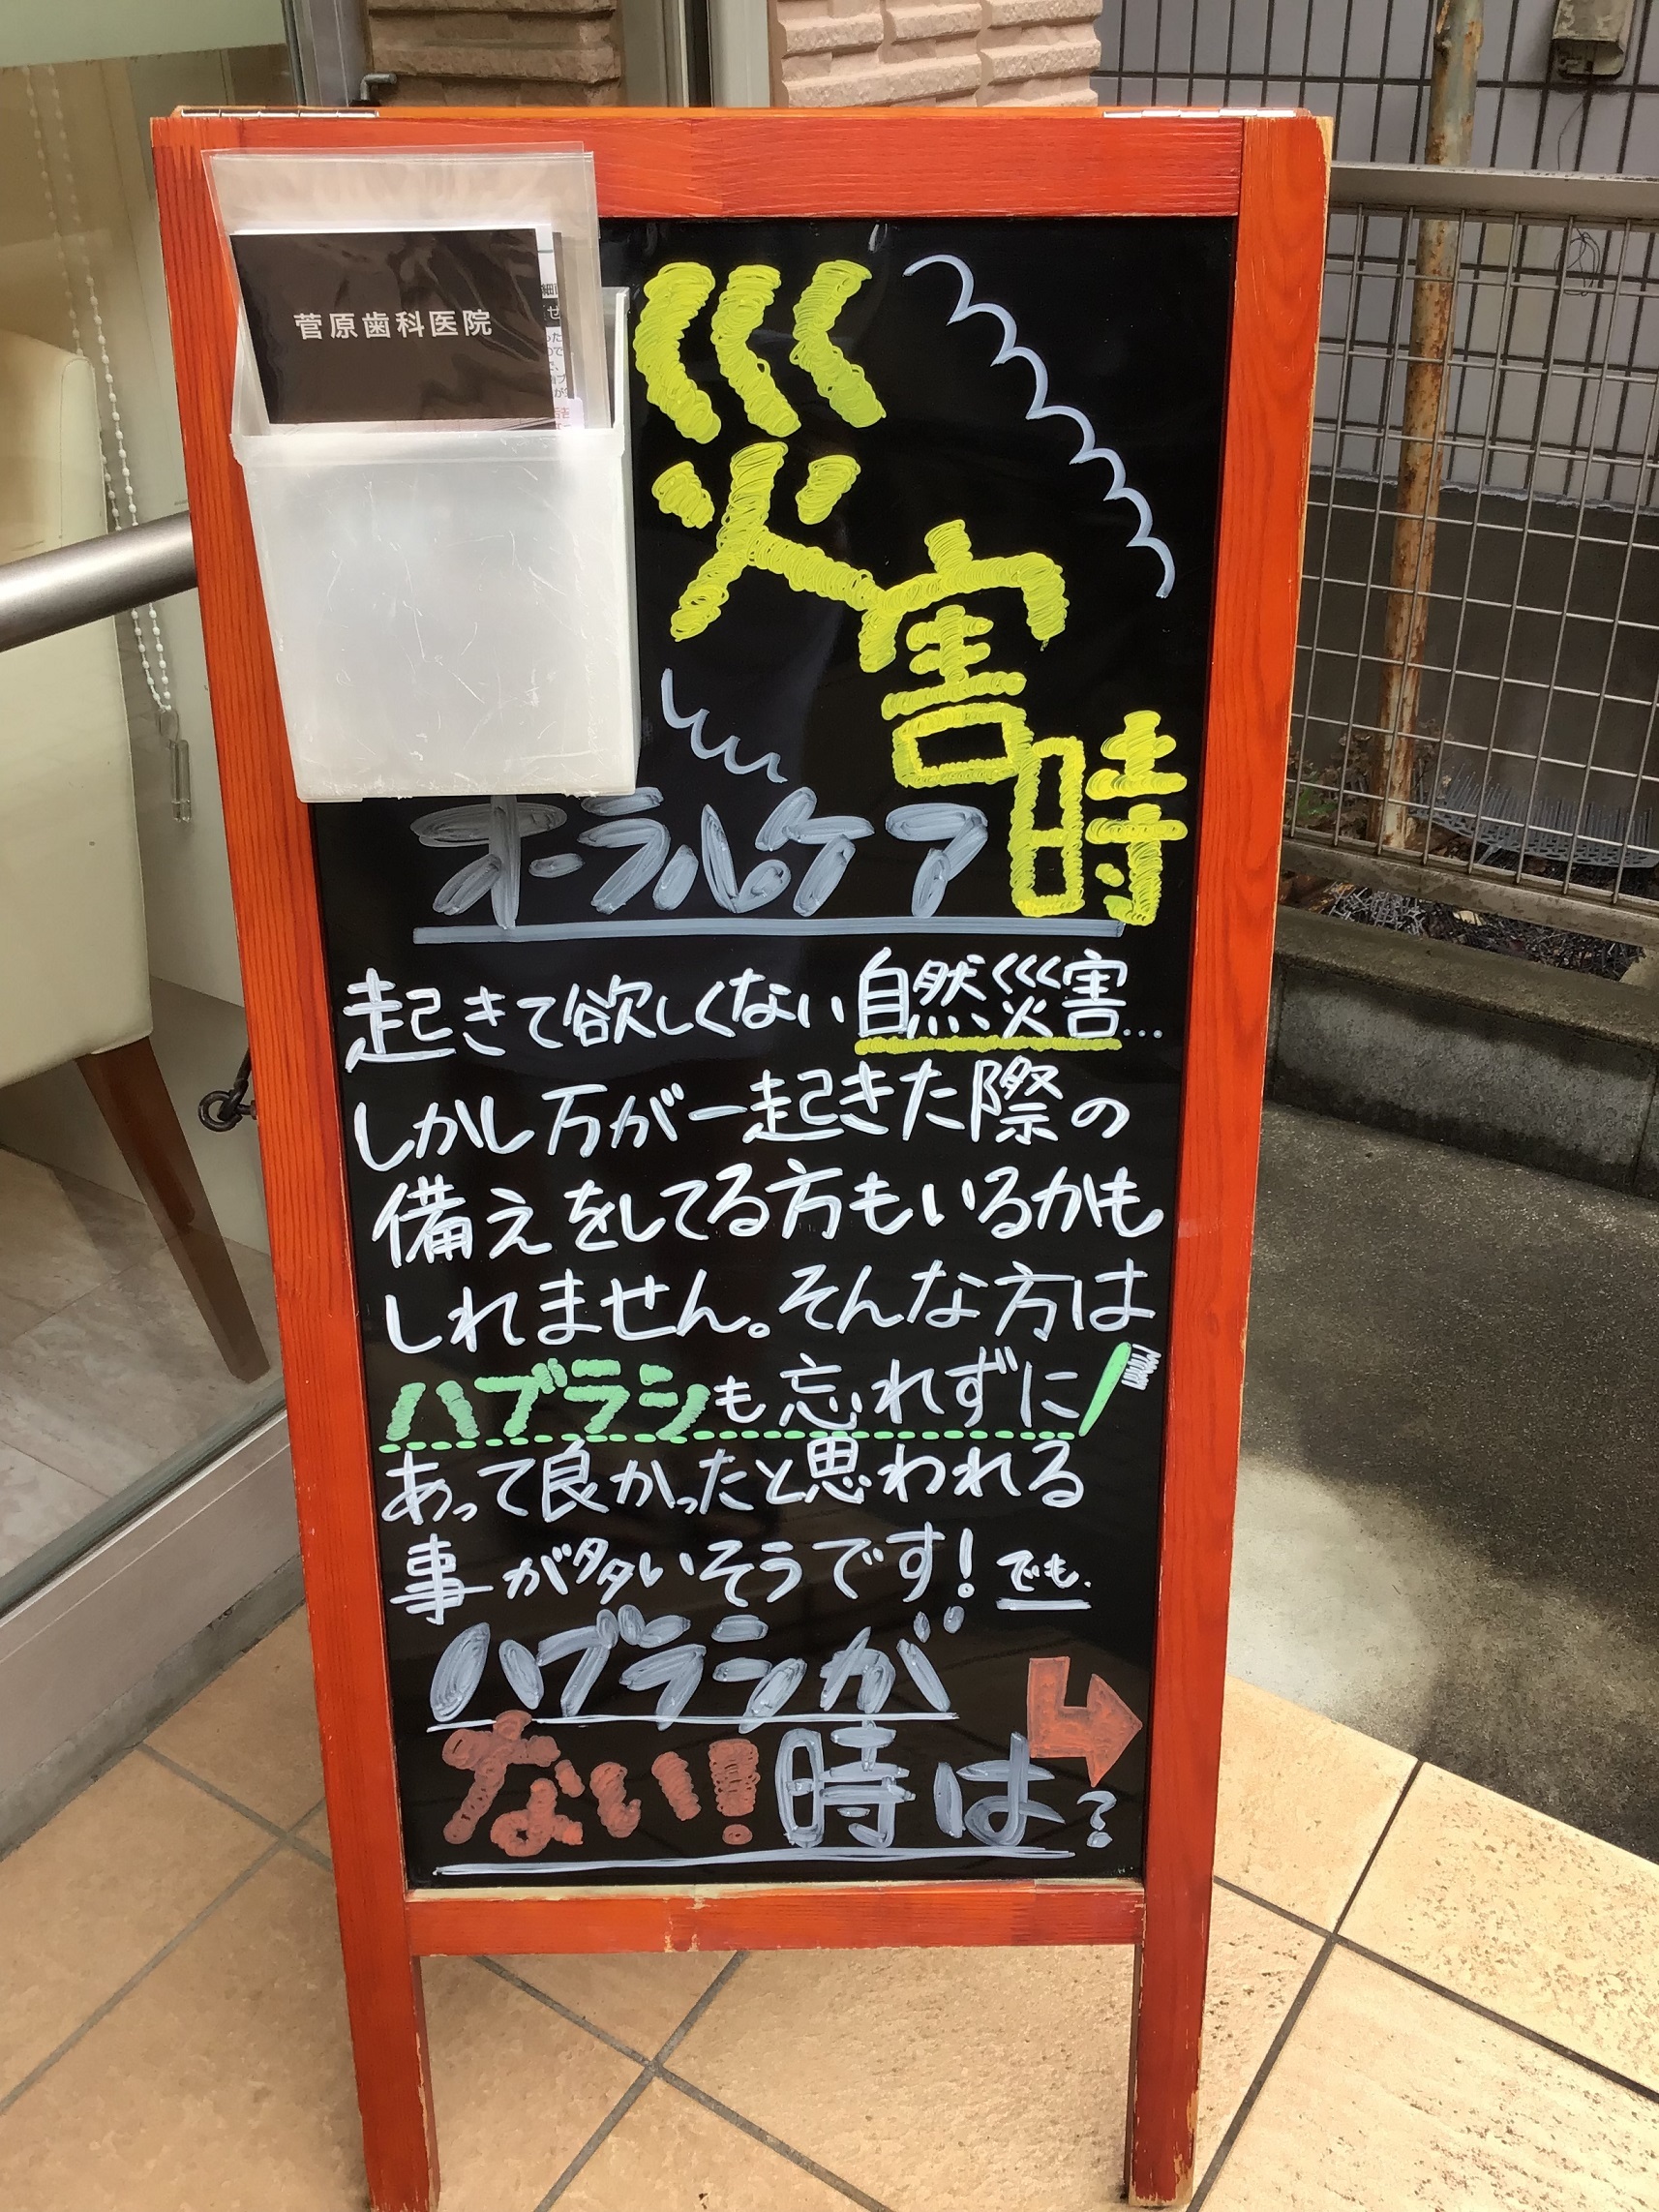 菅原歯科医院
災害時
オーラルケア
起きて欲しくない自然災害...
しかし万が一起きた際の
備えをしてる方もいるかも
しれません。そんな方は
ハブラシも忘れずに
あって良かったと思われる
事が多いそうです!でも、
ハブラシが
ない!時は?